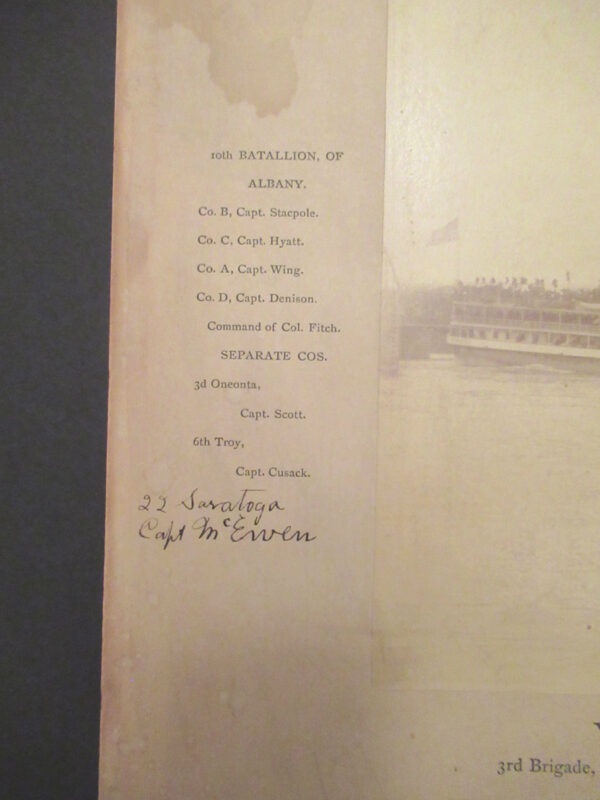 10th BATALLION, OF
ALBANY.
Co. B, Capt. Stacpole.
Co. C, Capt. Hyatt.
Co. A, Capt. Wing.
Co. D, Capt. Denison.
Command of Col. Fitch.
SEPARATE COS.
3d Oneonta,
Capt. Scott.
6th Troy,
Capt. Cusack.
22 Saratoga
Capt McEwen
3rd Brigade,